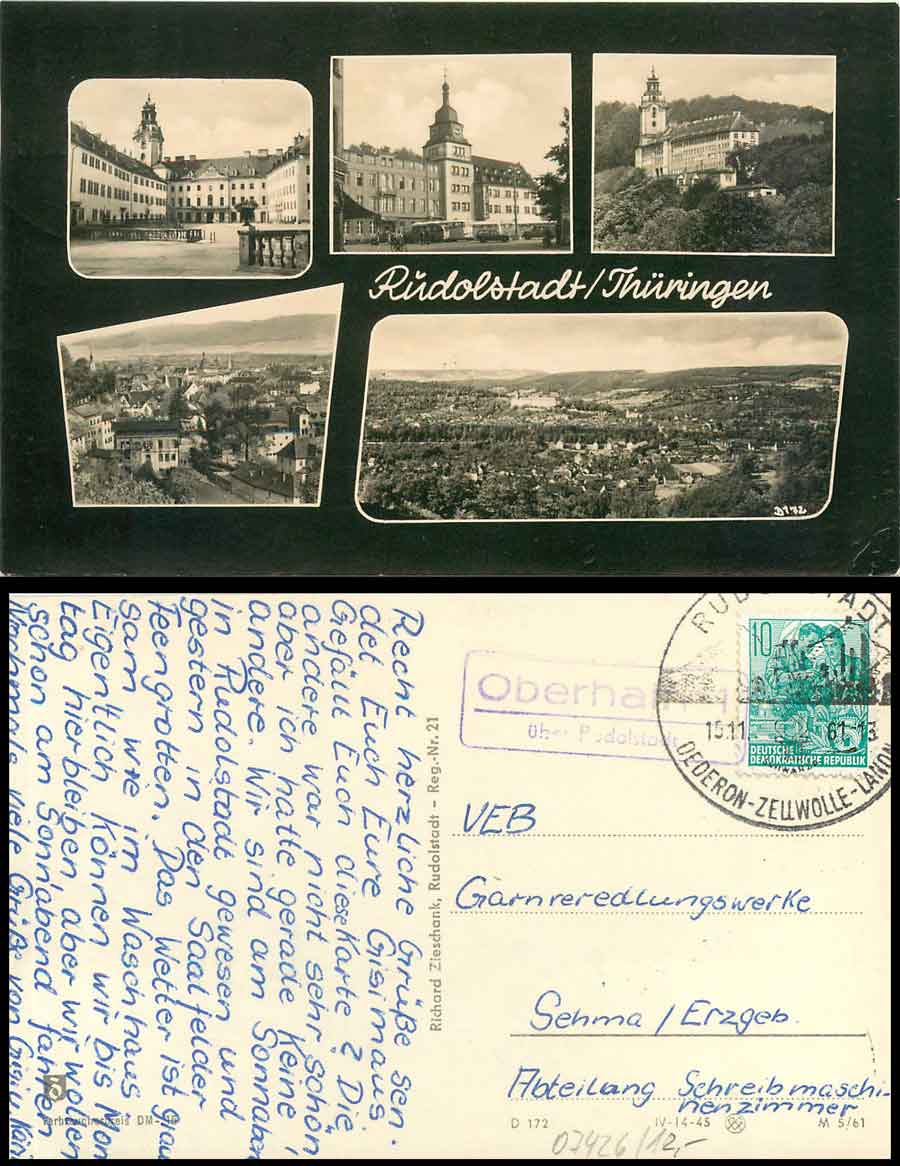 Rudolstadt/Thüringen
D172
Recht herzliche Grüße sen-
det Euch Eure Gisimaus.
Gefällt Euch diese Karte? Die
andere war nicht sehr schön
aber ich hatte gerade keine
andere. Wir sind am Sonnaben
in Rudolstadt gewesen und
gestern in den Saalfelder
Feengrotten. Das Wetter ist grau
sam wie im Waschhaus.
Eigentlich können wir bis Mon
tag hier bleiben aber wir wollen
schon am Sonnabend fahren
Nochmals viele Grüße von
Verbraucherpreis DM
Richard Zieschank, Rudolstadt - Reg.-Nr. 21
Oberhain
über Rudolstadt
RUDOLSTADT
15.11 61-13
DEDERON-ZELLWOLLE-
10
DEUTSCHE
DEMOKRATISCHE REPUBLIK
VEB
Garnveredlungswerke
Sehma / Erzgeb.
Abteilung Schreibmaschi-
nenzimmer
D 172
IV-14-45
M 5/61
07426/12,-